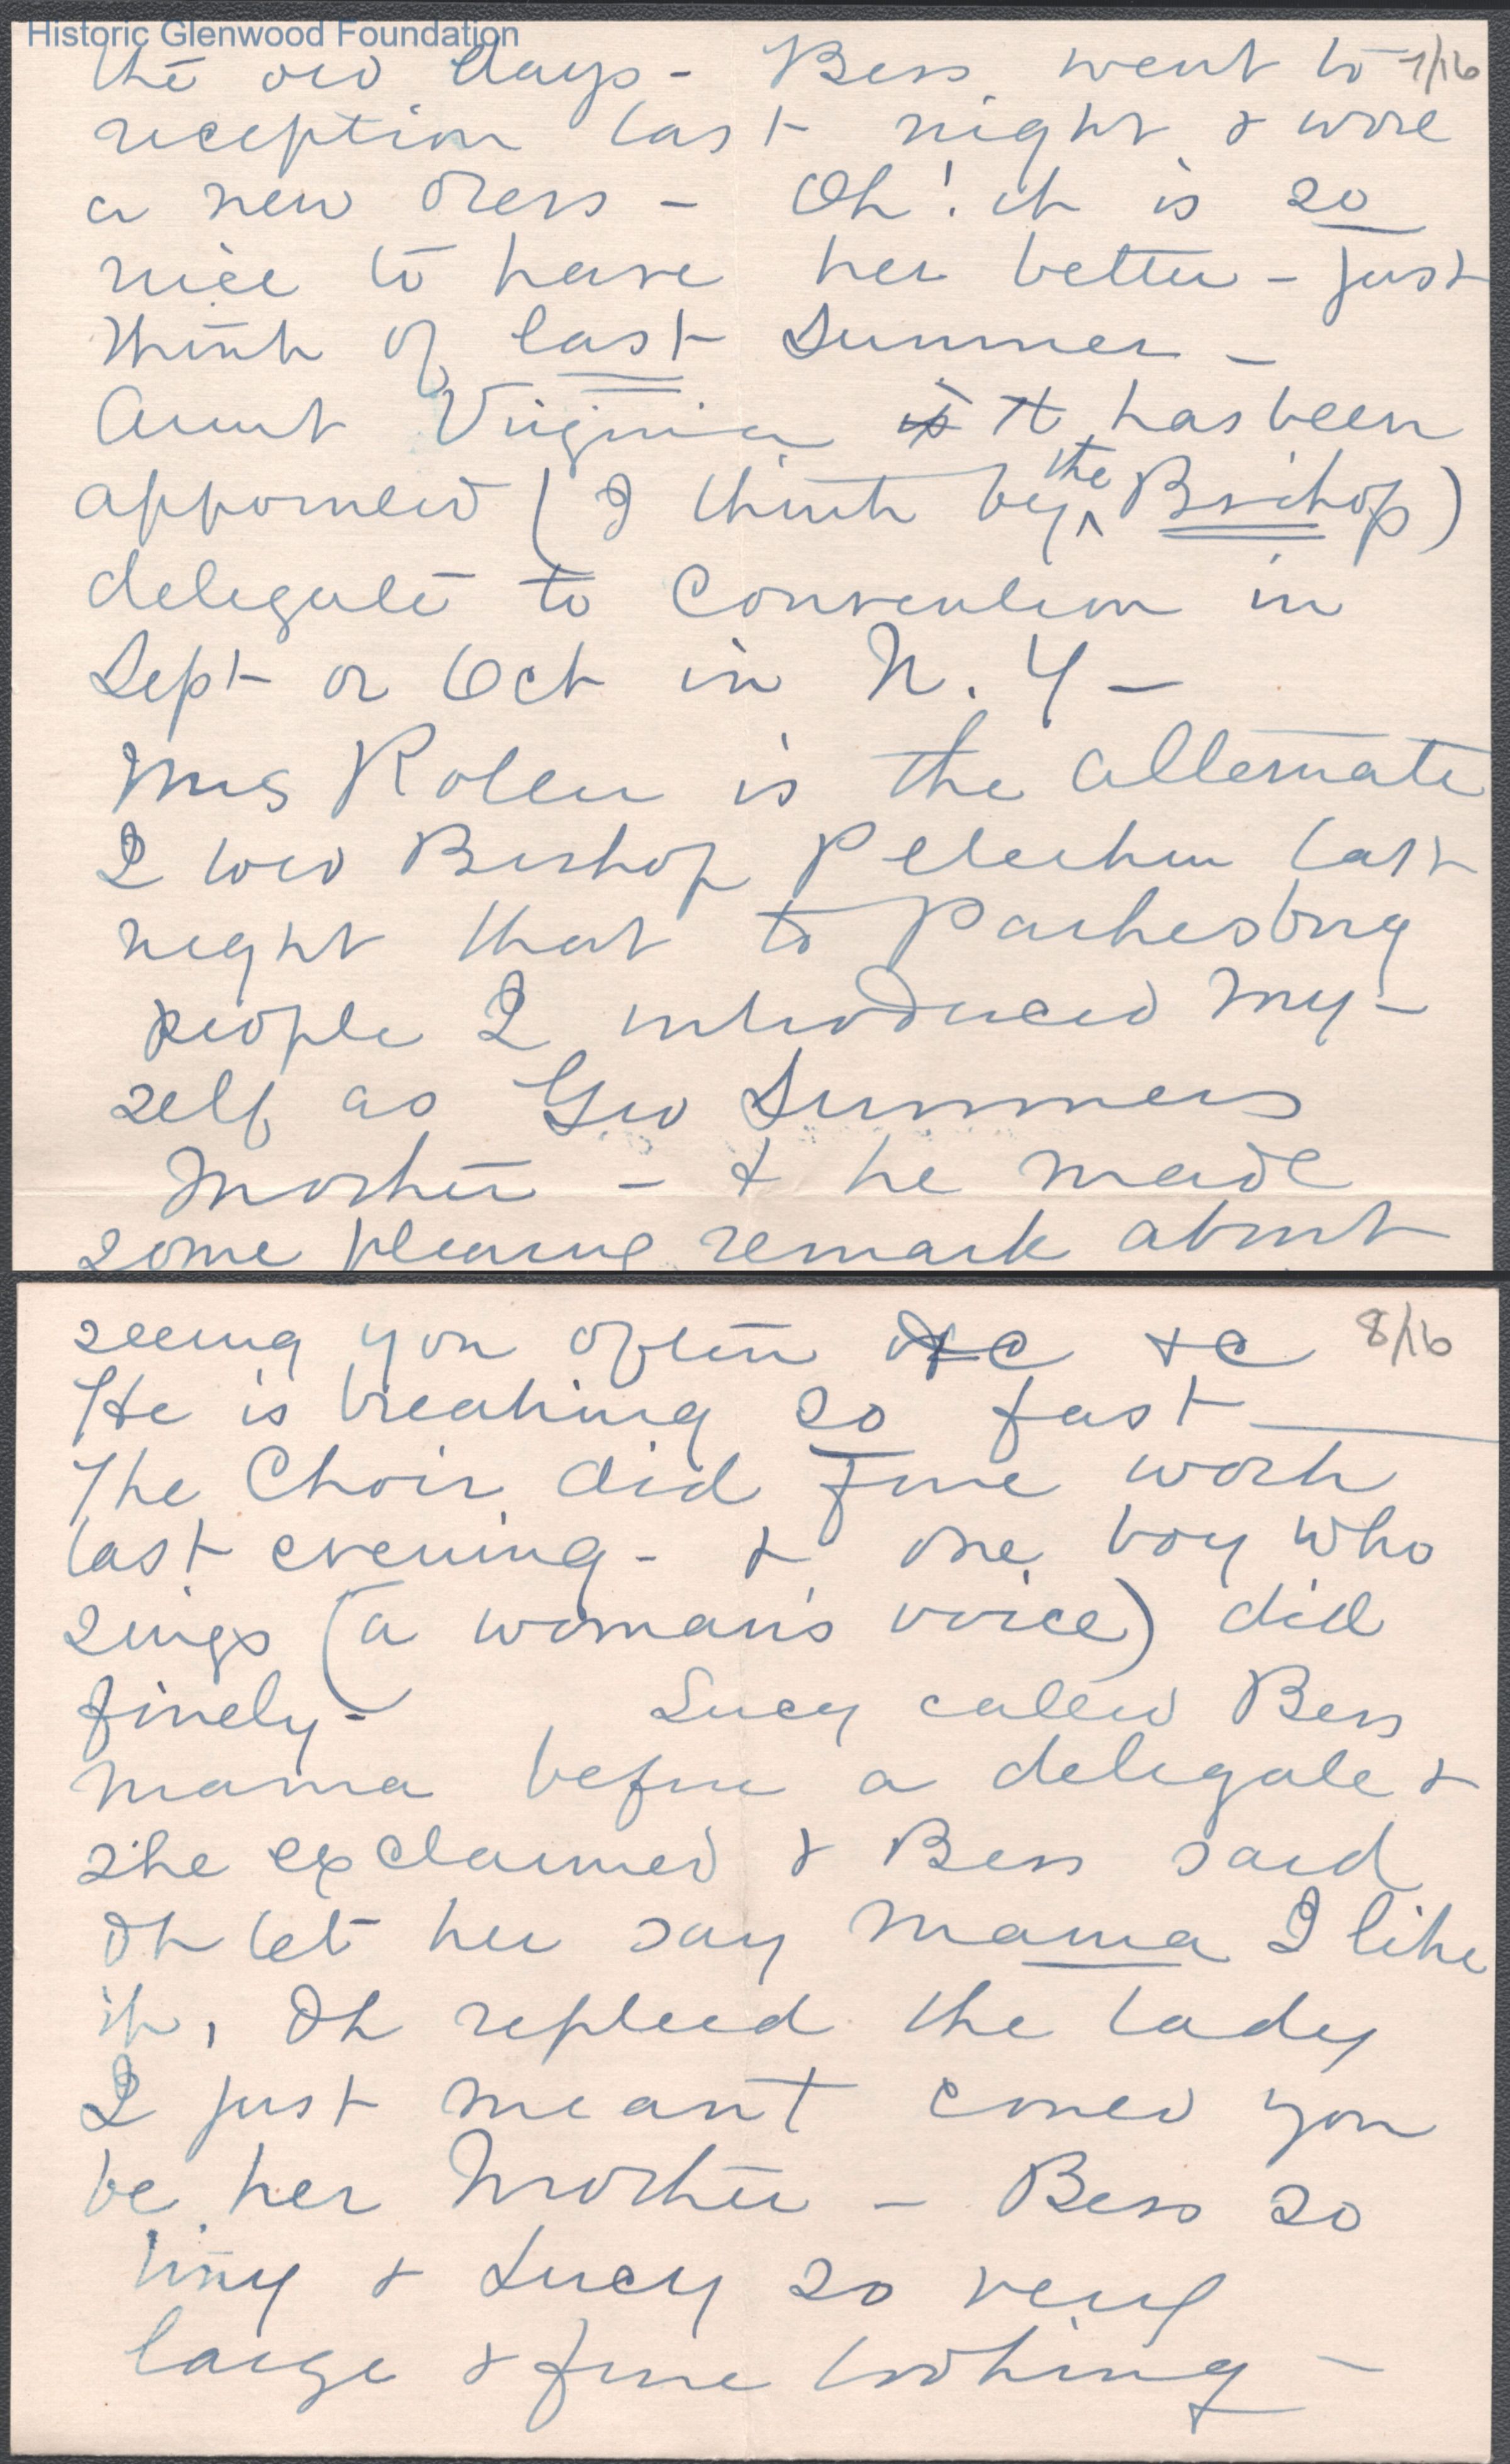 Historic Glenwood Foundation
the old days - Bess went to 7/16
reception last night & wore
a new dress - Oh! it is so
nice to have her better - Just
think of last Summer -
Aunt Virginia is has been
appointed (I think by the Bishop)
delegate to Convention in
Sept or Oct in N. Y -
Mrs is the alternate
I told Bishop Peterkin last
night that to Parkesburg
people I introduced my-
self as Geo Summers
Mother - & he made
some pleasing remark about
seeing you often &c &c 8/16
He is breaking so fast
The Choir did fine work
last evening - & one boy who
sings (a woman's voice) did
finely - Lucy called Bess
mama before a delegate &
she exclaimed & Bess said
Oh let her say Mama I like
it, Oh replied the lady
I just meant could you
be her Mother - Bess so
tiny & Lucy so very
large & fine looking -